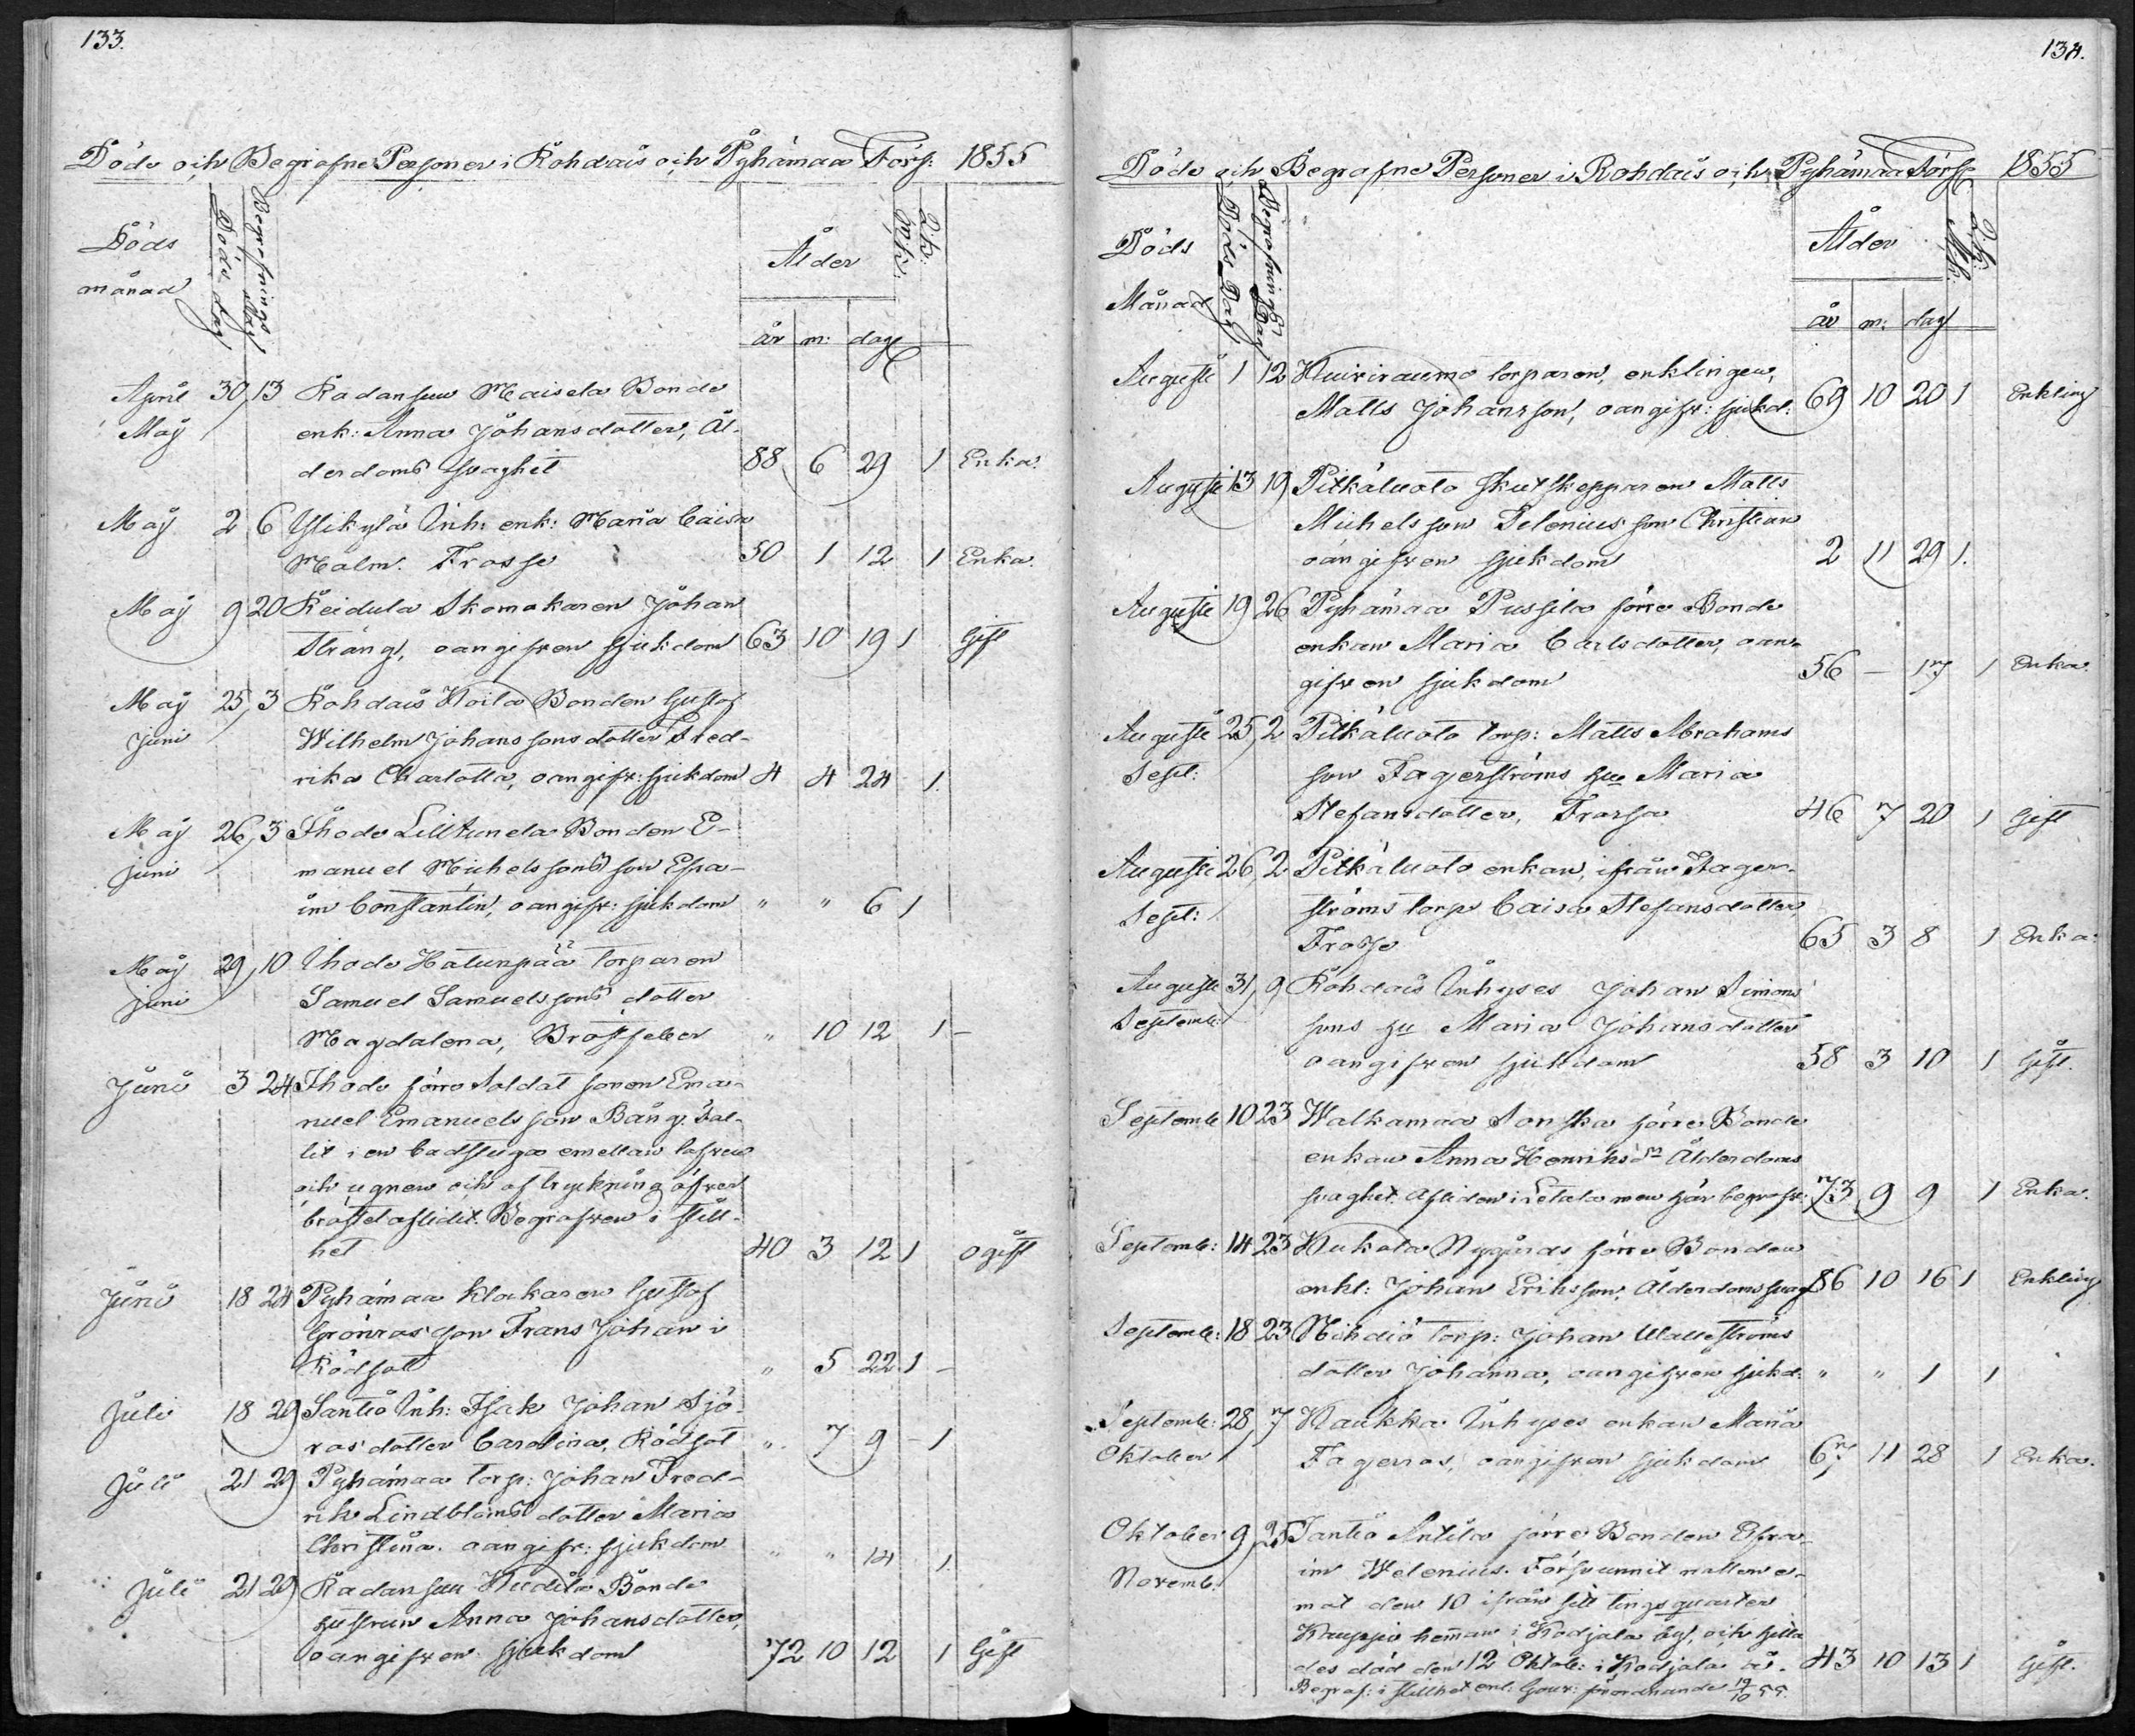 133.
Döde och Begrafne Personer i Rohdais och Pyhämaa Förs: 1855
Döds månad
Döds dag
Begrafnings dag
Ålder
år m: dag
M:k:
Q:k:
April 30/13 Radansuu Maisela Bonde
Maÿ enk: Anna Johansdotter, Ål-
derdoms svaghet 88 6 29 1 Enka.
Maÿ 2 6 Ylikylä Inh: enk: Maria Caisa
Malm. Frossa 50 1 12 1 Enka.
Maÿ 9 20 Reidula Skomakaren Johan
Sträng, oangifven sjukdom 63 10 19 1 Gift
Maÿ 25/3 Rohdais Koila Bonden Gustaf
Juni Wilhelm Johanssons dotter Fred-
rika Charlotta, oangifv: sjukdom 4 4 24 1.
Maÿ 26/3 Ihode Lilltunela Bonden E-
Juni manuel Michelssons son Efra-
im Constantin, oangifv: sjukdom " " 6 1
Maÿ 29/10 Ihode Hatunpää torparen
Juni Samuel Samuelssons dotter
Magdalena, Bröstfeber " 10 12 1 -
Juni 3 24 Ihode förre Soldat sonen Ema-
nuel Emanuelsson Bång. Fal-
lit i en badstuga emellan lafven
och ugnen och af tryckning öfver
bröstet aflidit. Begrafven i still-
het 40 3 12 1 ogift
Juni 18 24 Pyhämaa klockaren Gustaf
Grönroos son Frans Johan i
Rödsot " 5 22 1 -
Juli 18 29 Santio Inh: Isak Johan Sjö-
roos dotter Carolina, Rödsot " 7 9 - 1
Juli 21 29 Pyhämaa torp: Johan Fred-
rik Lindbloms dotter Maria
Christina. oangifv: sjukdom " " 14 1.
Juli 21 29 Radansuu Kudila Bonde
hustrun Anna Johansdotter,
oangifven sjukdom 72 10 12 1 Gift
134.
Döde och Begrafne Personer i Rohdais och Pyhämaa Förs: 1855
Döds Månad
Döds Dag
Begrafnings Dag
Ålder
år m: dag
M:k:
Q:k:
Augusti 1 12 Kuiviraumo torparen, enklingen,
Matts Johansson, oangifv: sjukd: 69 10 20 1 Enkling
Augusti 13 19 Pitkäluoto skutskepparen Matts
Michelsson Selenius son Christian
oangifven sjukdom 2 11 29 1.
Augusti 19 26 Pyhämaa Pussila förre Bonde
enkan Maria Carlsdotter, oan-
gifven sjukdom 56 - 17 1 Enka
Augusti 25/2 Pitkäluoto torp: Matts Abrahams
Sept: son Fagerströms hu Maria
Stefansdotter, Frossa 46 7 20 1 Gift
Augusti 26/2 Pitkäluoto enkan, ifrån Fager-
Sept: ströms torp Caisa Stefansdotter,
Frossa 65 3 8 1 Enka:
Augusti 31/9 Rohdais Inhyses Johan Simons
Septemb: sons hu Maria Johansdotter
oangifven sjukdom 58 3 10 1 Gift.
Septemb 10 23 Walkamaa Sonska förre Bonde
enkan Anna Henriksdr Ålderdoms
svaghet. Afliden i Letala men här begrafv: 73 9 9 1 Enka.
Septemb: 14 23 Kukola Nygårds förre Bonden
enkl: Johan Eriksson, Ålderdoms svag 86 10 16 1 Enkling
Septemb: 18 23 Nihdiö torp: Johan Wallströms
dotter Johanna, oangifven sjukd: " " 1 1
Septemb: 28/7 Kaukka Inhyses enkan Maria
Oktober Fagerros, oangifven sjukdom 67 11 28 1 Enka.
Oktober 9/25 Santio Antila förre Bonden Efra-
Novemb: im Welenius. Försvunnit natten e-
mot den 10 ifrån sitt tings quarter
Krupio hemman i Kodjala by, och hitta
des död den 12 Oktob: i Kodjala å. 43 10 13 1 Gift.
Begraf: i stillhet enl: Gouv: förordnande 19/10 55.